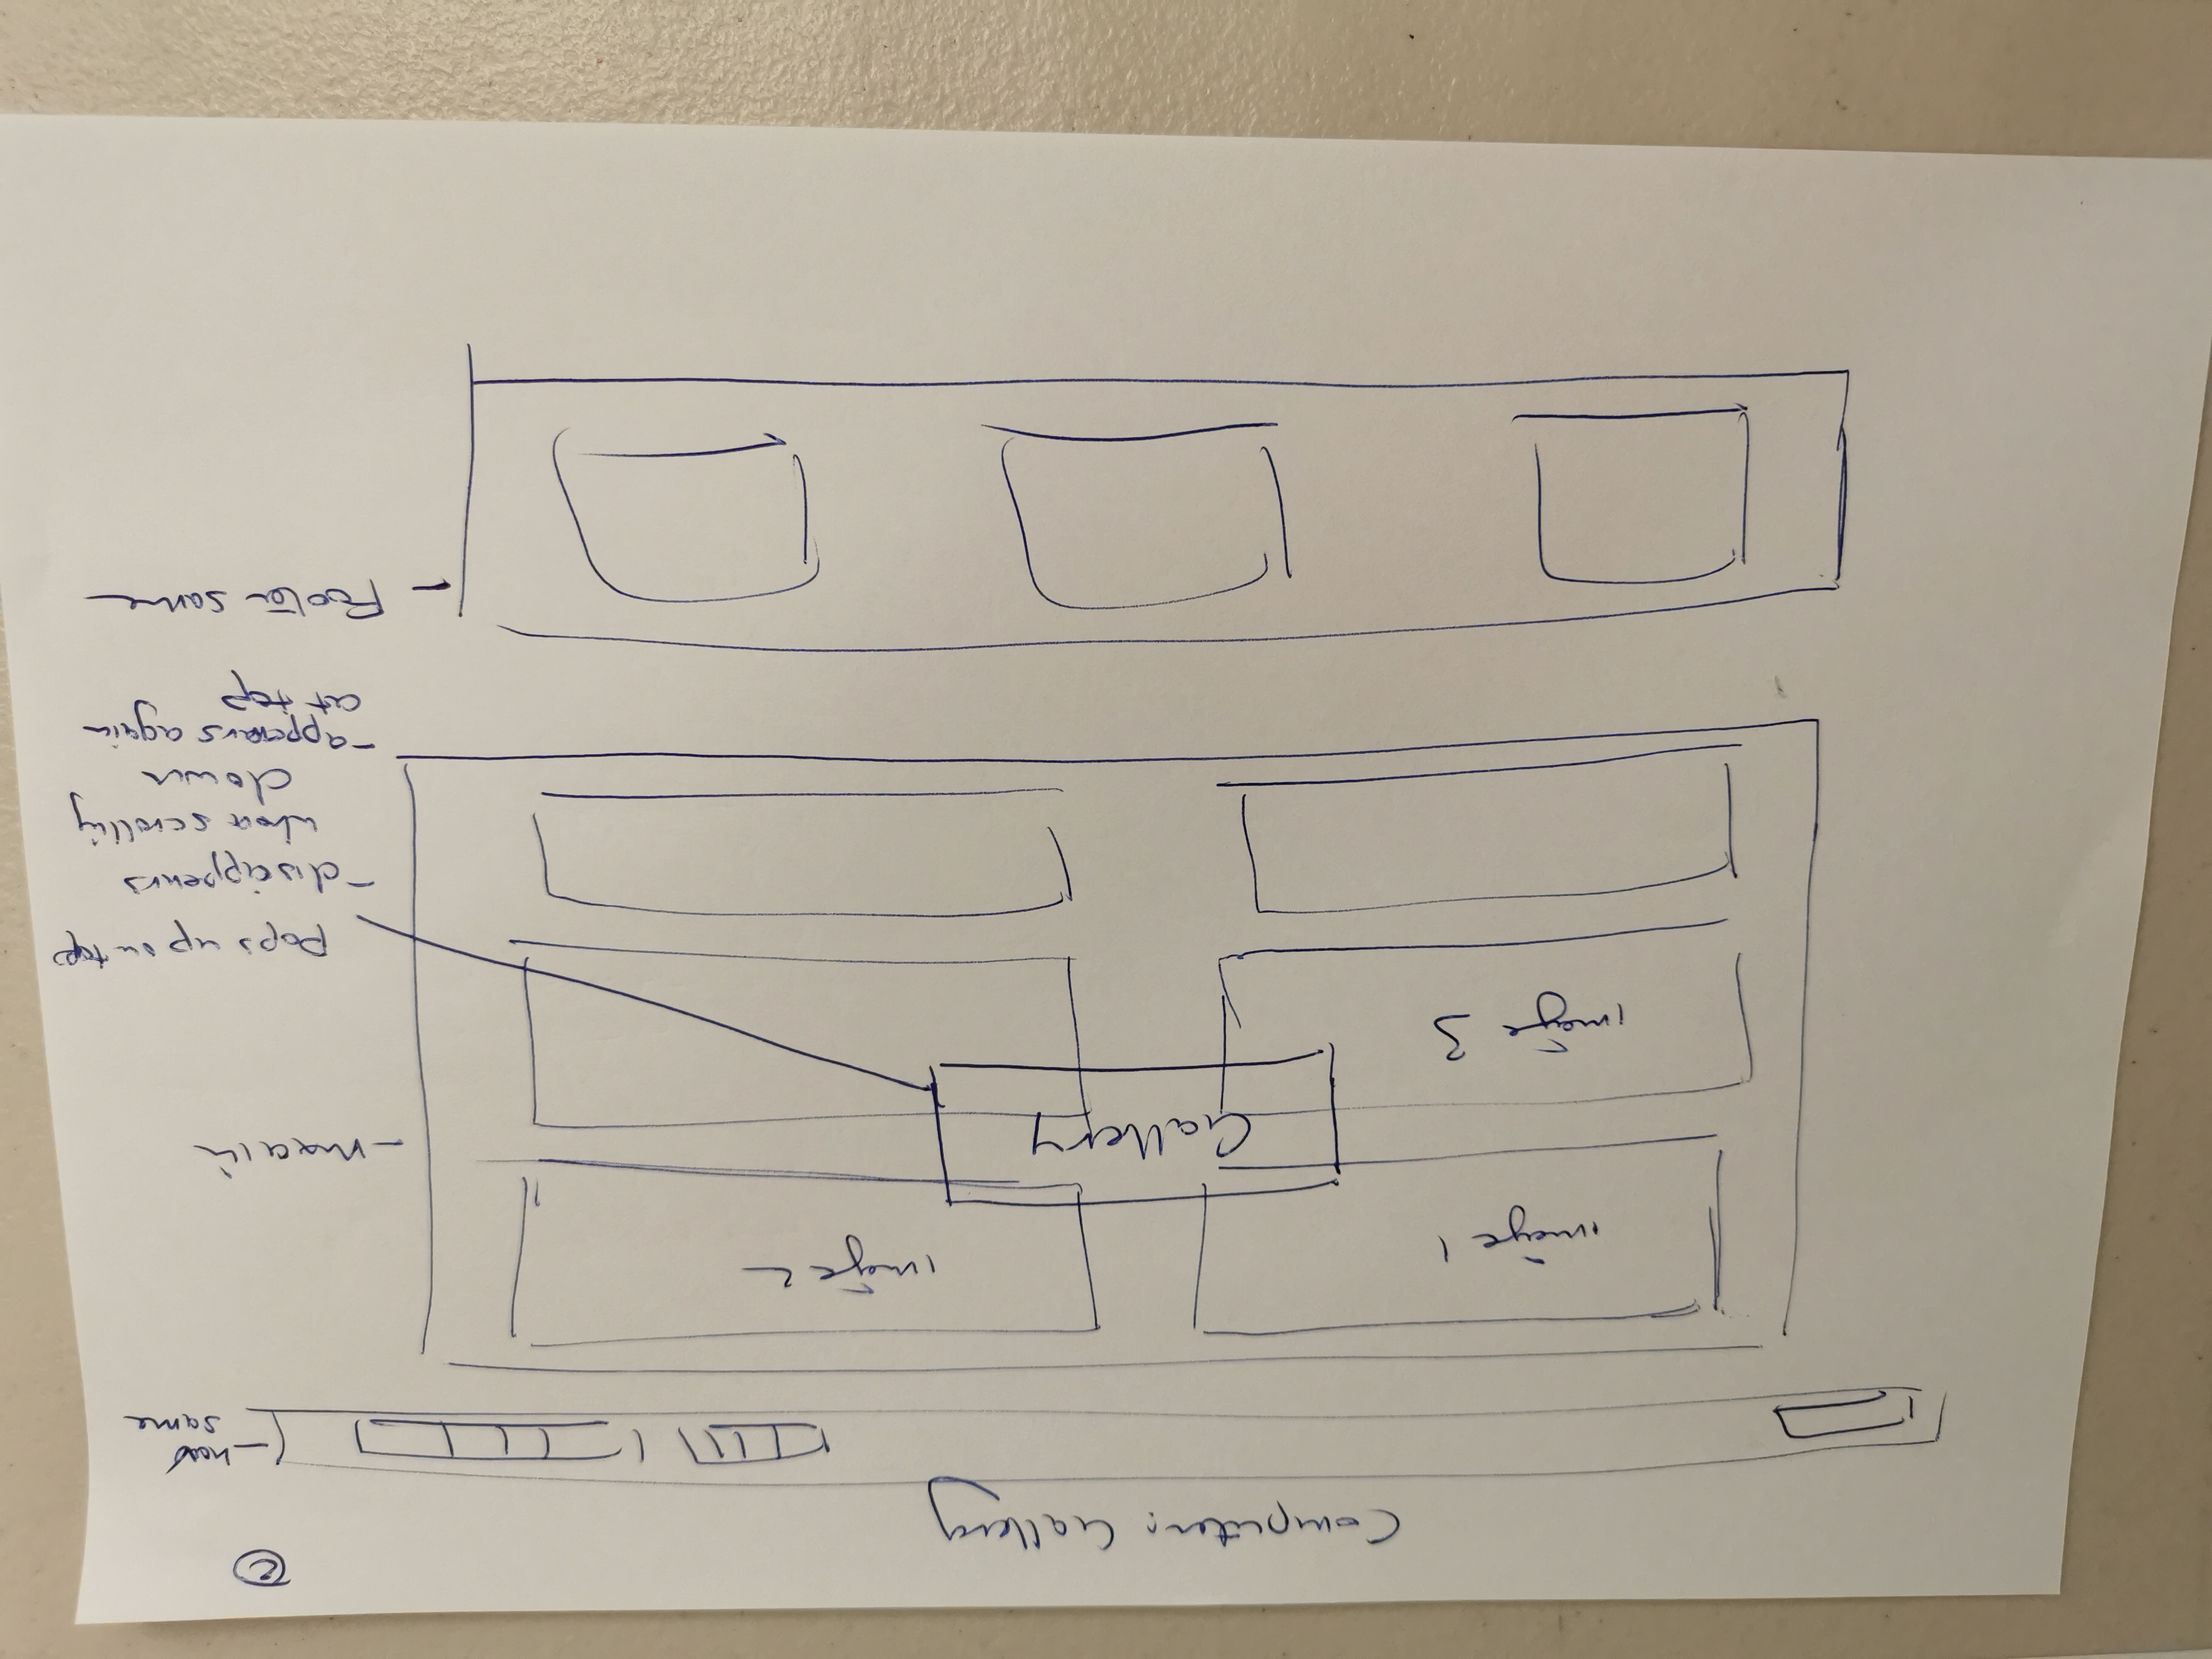 2
Computer: Gallery
- nav
same
image 1
image 2
Gallery
- main
image 3
Pops up on top
- disappears
when scrolling
down
- appears again
at top
- Footer same